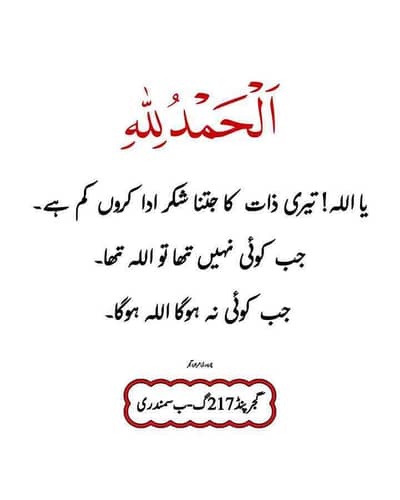 اَلْحَمْدُلِلّٰهِ
یا اللہ! تیری ذات کا جتنا شکر ادا کروں کم ہے۔
جب کوئی نہیں تھا تو اللہ تھا۔
جب کوئی نہ ہوگا اللہ ہوگا۔
گجر پنڈ 217 گ-ب سمندری